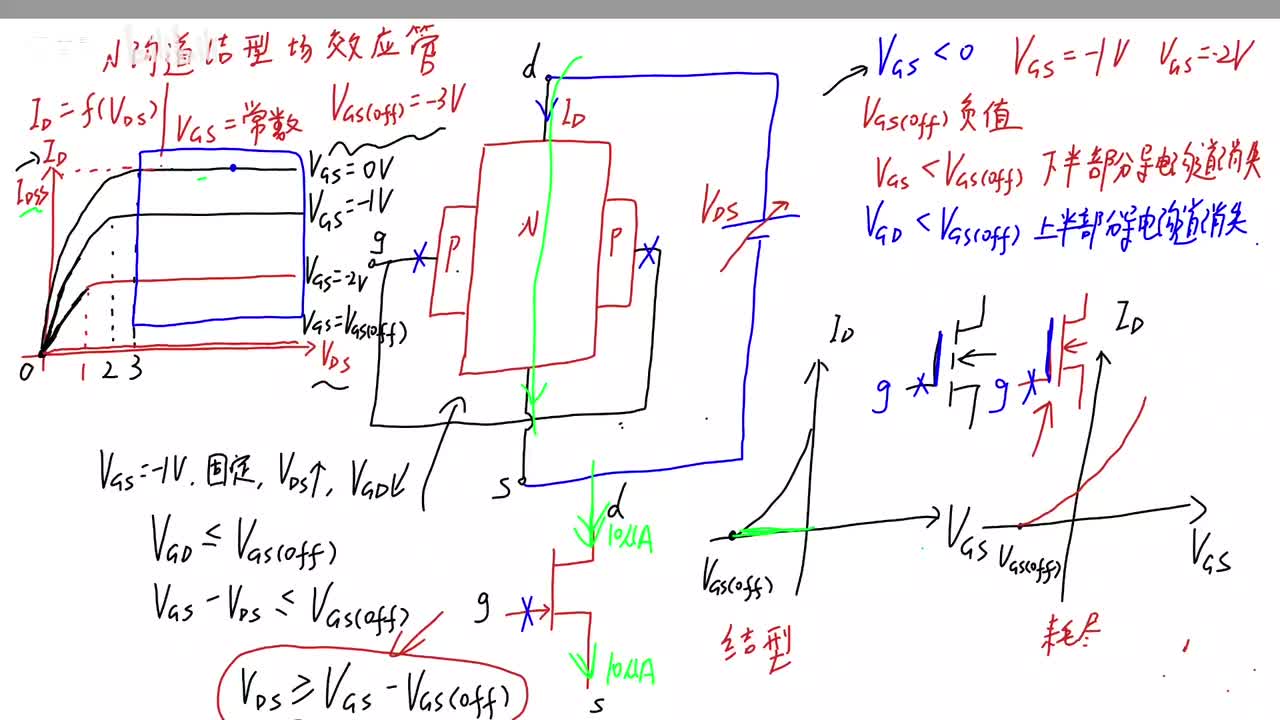 N沟道结型场效应管
I_D = f(V_DS) | V_GS = 常数
V_GS(off) = -3V
I_D
I_DSS
V_GS = 0V
V_GS = -1V
V_GS = -2V
V_GS = V_GS(off)
0 1 2 3
V_DS
d
I_D
N
P
P
g
s
V_DS
V_GS < 0 V_GS = -1V V_GS = -2V
V_GS(off) 负值
V_GS < V_GS(off) 下半部分导电沟道消失
V_GD < V_GS(off) 上半部分导电沟道消失
V_GS = -1V. 固定, V_DS↑, V_GD↓
V_GD ≤ V_GS(off)
V_GS - V_DS ≤ V_GS(off)
V_DS ≥ V_GS - V_GS(off)
d
10μA
g
10μA
s
I_D
V_GS
V_GS(off)
结型
g
g
I_D
V_GS(off)
V_GS
耗尽